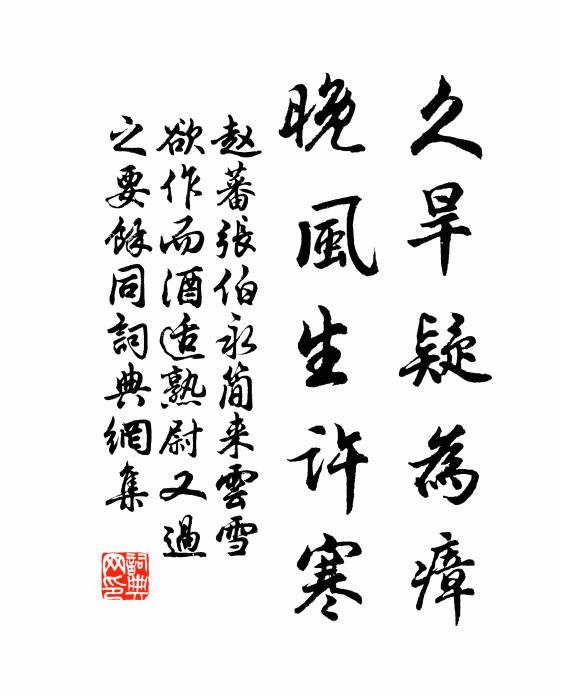 久旱疑為瘴
晚風生許寒
赵蕃張伯永簡来雲雪
欲作而酒适熟尉又過
之要餘同詞典網集
詞典网印